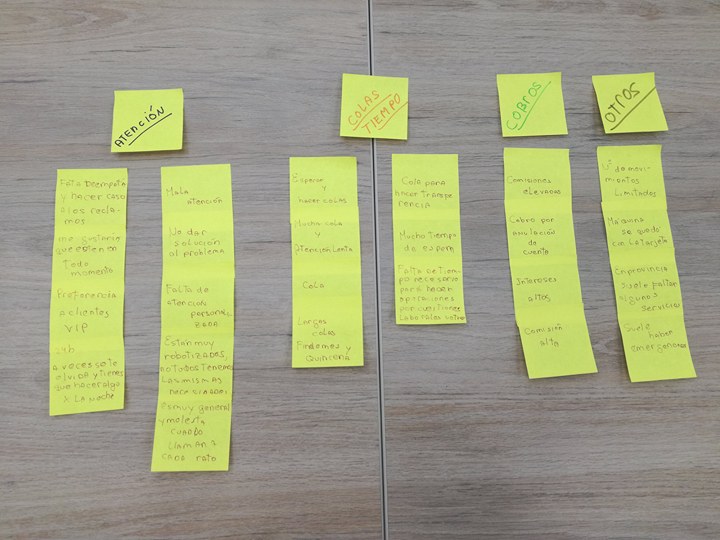 ATENCIÓN
COLAS
TIEMPO
COBROS
OTROS
Falta de empatía
y hacer caso
a los recla-
mos
me gustaría
que estén en
todo
momento
Preferencia
a clientes
VIP
24h
a veces se te
olvida y tienes
que hacer algo
a la noche
Mala
atención
No dar
solución
al problema
Falta de
atencion
personal
izada
Están muy
robotizados,
no todos tenemos
las mismas
necesidades
es muy general
y molesta
cuando
llaman a
cada rato
Esperar
y
hacer colas
Mucha cola
y
atención lenta
Cola
Largas
colas
Findemes y
Quincena
Cola para
hacer transfe
rencia
Mucho tiempo
de espera
Falta de tiem-
po necesario
para hacer
operaciones
por cuestiones
laborales
Comisiones
elevadas
Cobro por
anulación
de
cuenta
Intereses
altos
Comisión
alta
N° de movi-
mientos
limitados
Máquina
se quedó
con la tarjeta
En provincia
suele faltar
algunos
servicios
Suele
haber